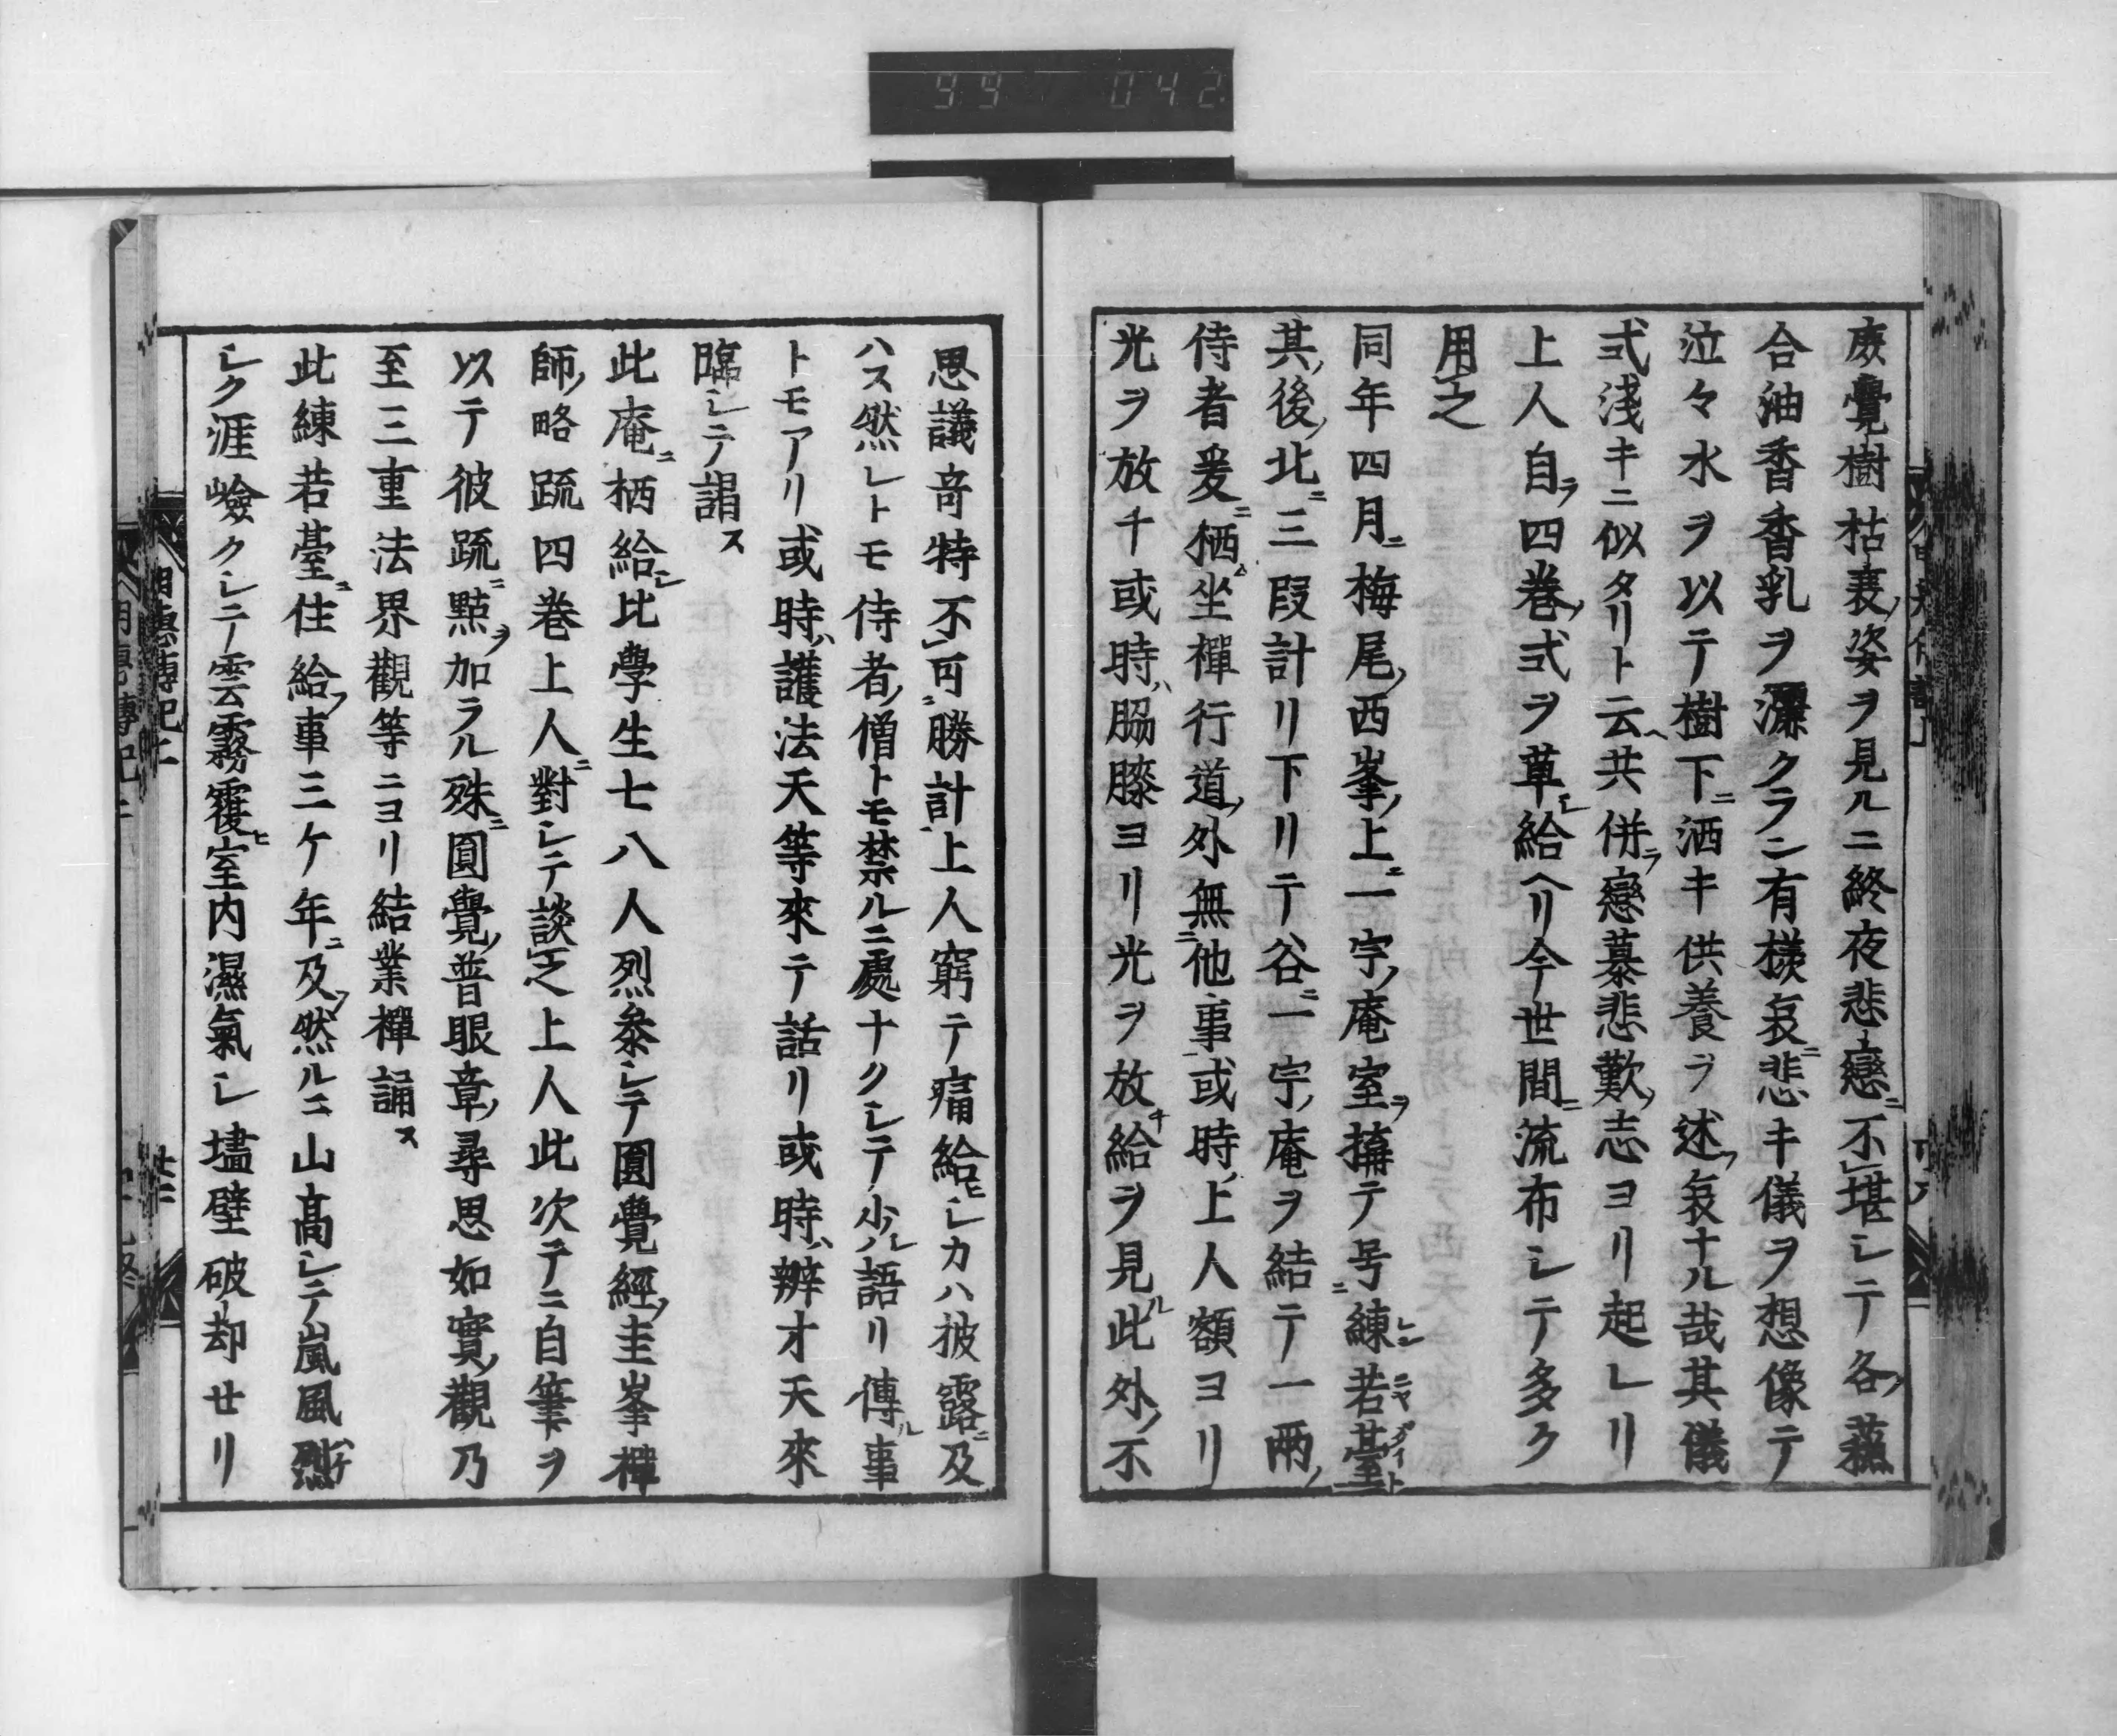 99 042
廃覺樹枯衰ノ姿ヲ見ルニ終夜悲戀ニ不レ堪シテ各ノ蘓
合油香香乳ヲ灑クラン有樣哀ニ悲キ儀ヲ想像テ
泣々水ヲ以テ樹下ニ洒キ供養ヲ述フ哀ナル哉其儀
式淺キニ似タリト云ヘ共併ラ戀慕悲歎ノ志ヨリ起レリ
上人自ラ四巻ノ式ヲ草シ給ヘリ今世間ニ流布シテ多ク
用レ之
同年四月ニ梅尾ノ西峯ノ上ニ一宇ノ庵室ヲ搆テ号ニ練若臺ト
其ノ後ノ北ニ三叚計リ下リテ谷ニ一宇ノ庵ヲ結テ一兩ノ
侍者爰ニ栖ム坐禪行道ノ外無ニ他事一或時ノ上人額ヨリ
光ヲ放チ或時ハ脇膝ヨリ光ヲ放チ給ヲ見ル此外ノ不
思議竒特不レ可ニ勝計一上人窮テ痛給ヒシカハ披露ニ及
ハス然レトモ侍者ノ僧トモ禁ルニ處ナクシテ少ル語リ傳ル事
トモアリ或時ハ護法天等來テ話リ或時ハ辨才天來
臨シテ謁ス
此庵ニ栖給シ比學生七八人烈参シテ圓覺經ノ圭峯禪
師ノ略疏四巻上人ニ對シテ談レ之上人此次テニ自筆ヲ
以テ彼疏ニ點ヲ加ラル殊ニ圓覺ノ普眼章ノ尋思如實ノ觀乃
至三重法界觀等ニヨリ結業禪誦ス
此練若臺ニ住給フ事三ケ年ニ及フ然ルニ山高シテ嵐風烈
シク涯嶮クシテ雲霧覆ヒ室内濕氣シ墻壁破却せリ